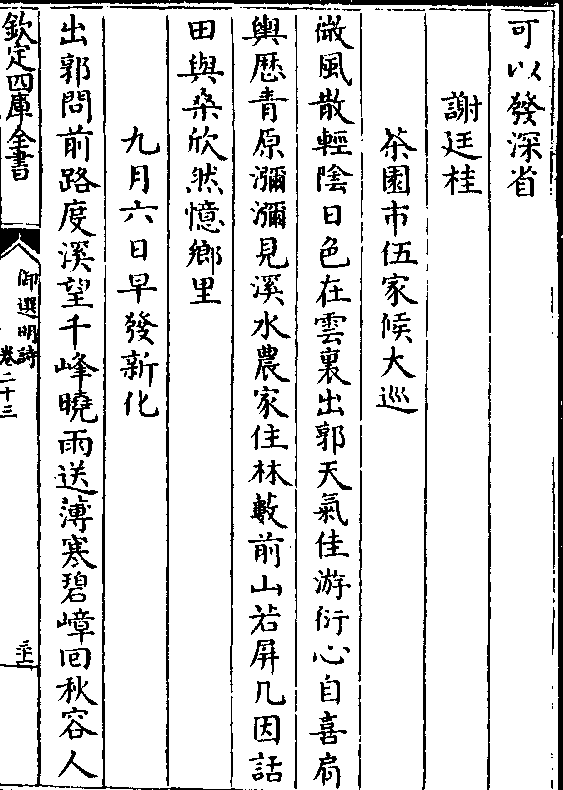 可以發深省
謝廷桂
茶園市伍家候大巡
微風散輕陰日色在雲裏出郭天氣佳游衍心自喜肩
輿歴青原瀰瀰見溪水農家住林藪前山若屏几因話
田與桑欣然憶鄉里
九月六日早發新化
出郭問前路度溪望千峰曉雨送薄寒碧嶂回秋容人
欽定四庫全書
御選明詩
卷二十三